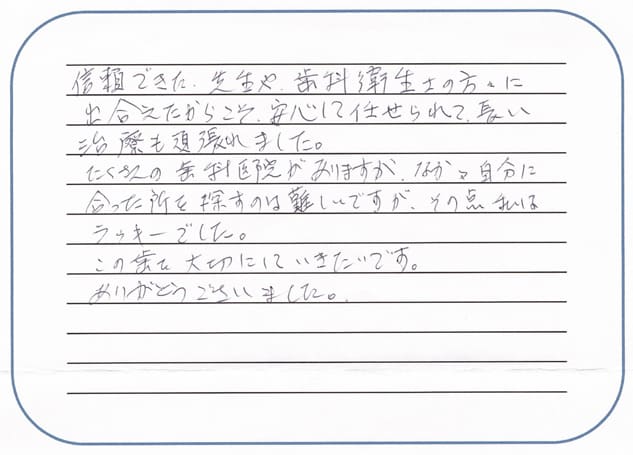 信頼できた、先生や、歯科衛生士の方々に
出合えたからこそ、安心して任せられて、長い
治療も頑張れました。
たくさんの歯科医院がありますが、なかなか自分に
合った所を探すのは難しいですが、その点私は
ラッキーでした。
この歯を大切にしていきたいです。
ありがとうございました。